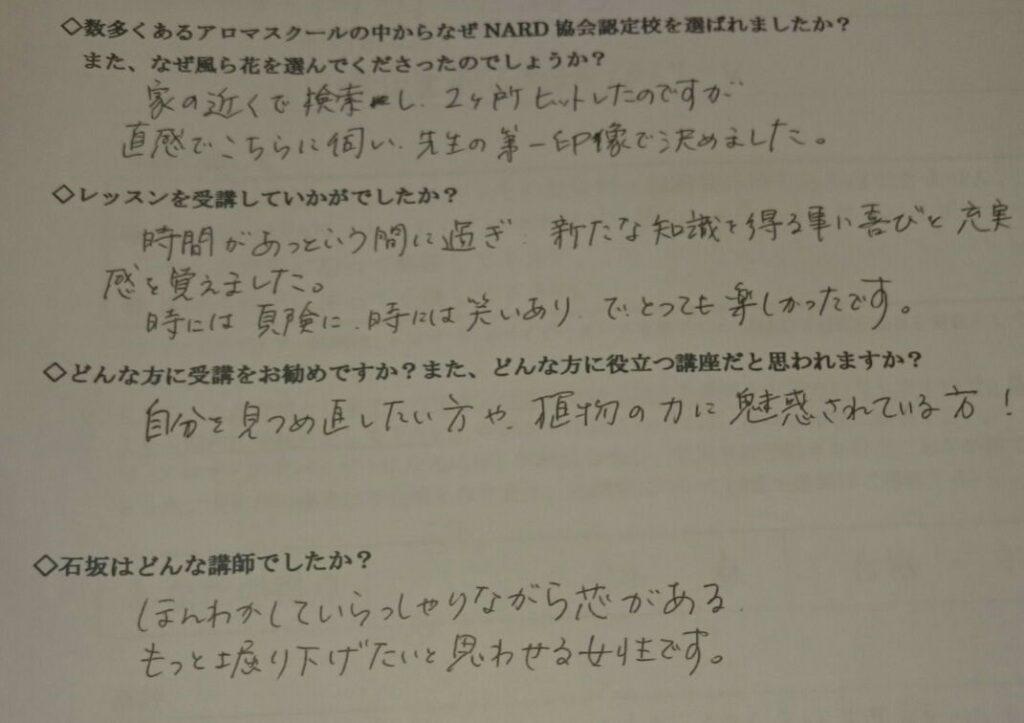 ◇数多くあるアロマスクールの中からなぜNARD協会認定校を選ばれましたか?
また、なぜ風ら花を選んでくださったのでしょうか?
家の近くで検索し、2ヶ所ヒットしたのですが
直感でこちらに伺い、先生の第一印像で決めました。
◇レッスンを受講していかがでしたか?
時間があっという間に過ぎ、新たな知識を得る事に喜びと充実
感を覚えました。
時には真険に、時には笑いあり、で、とっても楽しかったです。
◇どんな方に受講をお勧めですか?また、どんな方に役立つ講座だと思われますか?
自分を見つめ直したい方や、植物の力に魅惑されている方!
◇石坂はどんな講師でしたか?
ほんわかしていらっしゃりながら芯がある、
もっと堀り下げたいと思わせる女性です。